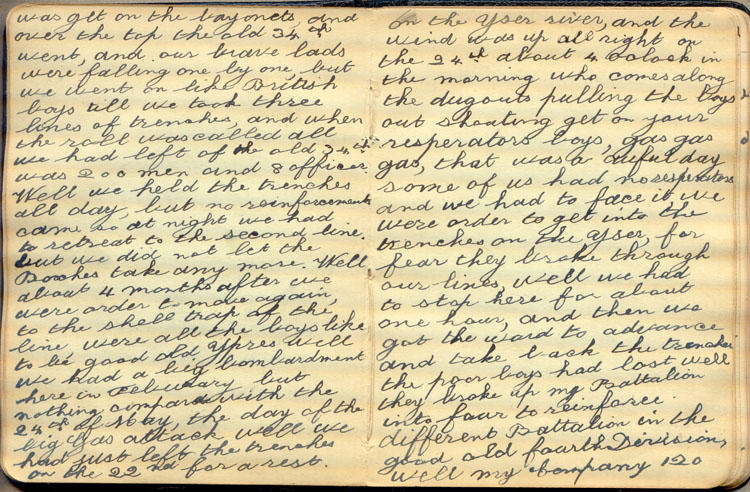 was get on the bayonets, and
over the top the old 34th
went, and our brave lads
were falling one by one but
we went on like British
boys till we took three
lines of trenches, and when
the roll was called all
we had left of the old 34th
was 200 men and 8 officer.
Well we held the trenches
all day, but no reinforcements
came so at night we had
to retreat to the second line.
but we did not let the
Boches take any more. Well
about 4 months after we
were order to move again,
to the shell trap of the
line were all the boys like
to be good old Ypres well
we had a big bombardment
here in Feburary but
nothing compare with the
24th of May, the day of the
big Gas attack well we
had just left the trenches
on the 22nd for a rest.
On the Yser river, and the
wind was up all right on
the 24th about 4 oclock in
the morning who comes along
the dugouts pulling the boys
out shouting get on your
resperators boys, gas gas
gas, that was a awful day
some of us had no resperators
and we had to face it we
were order to get into the
trenches on the Yser, for
fear they broke through
our lines, well we had
to stop here for about
one hour, and then we
got the word to advance
and take back the trenches
the poor boys had lost well
they broke up my Battalion
into four to reinforce
different Battalion in the
good old fourth Division,
well my Company 120